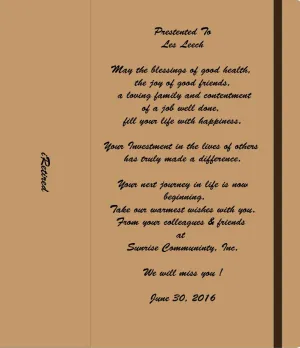 Prestented To
Les Leech
May the blessings of good health,
the joy of good friends,
a loving family and contentment
of a job well done,
fill your life with happiness.
Your Investment in the lives of others
has truly made a difference.
Your next journey in life is now
beginning.
Take our warmest wishes with you.
From your colleagues & friends
at
Sunrise Communinty, Inc.
We will miss you !
June 30, 2016
iRetired